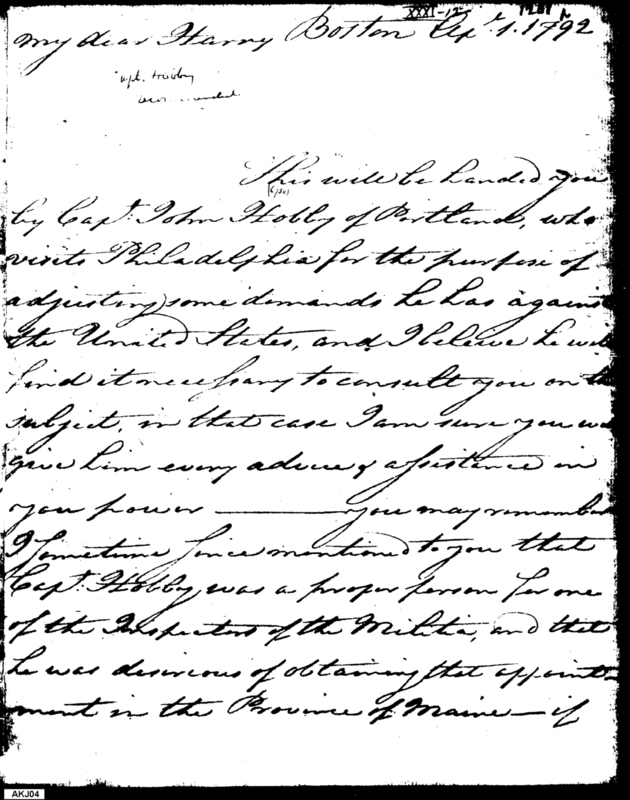 XXXI-12
My dear Harry Boston Apr. 1. 1792
Capt. Hobby
This will be handed you
by Capt. John Hobby of Portland, who
visits Philadelphia for the purpose of
adjusting some demands he has against
the United States, and I beleive he will
find it necessary to consult you on the
subject, in that case I am sure you will
give him every advice & assistance in
you power — you may remember
I sometime since mentioned to you that
Capt. Hobby was a proper person for one
of the Inspectors of the Militia, and that
he was desireous of obtaining that appoint-
ment in the Province of Maine — if
AKJ04